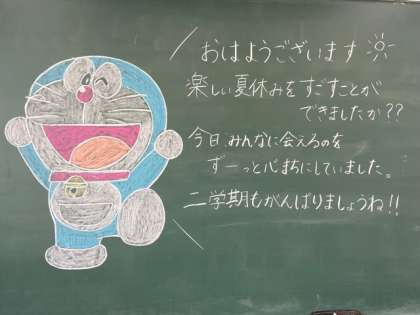 おはようございます
楽しい夏休みをすごすことが
できましたか??
今日みんなに会えるのを
ずーっと心まちにしていました。
二学期もがんばりましょうね!!